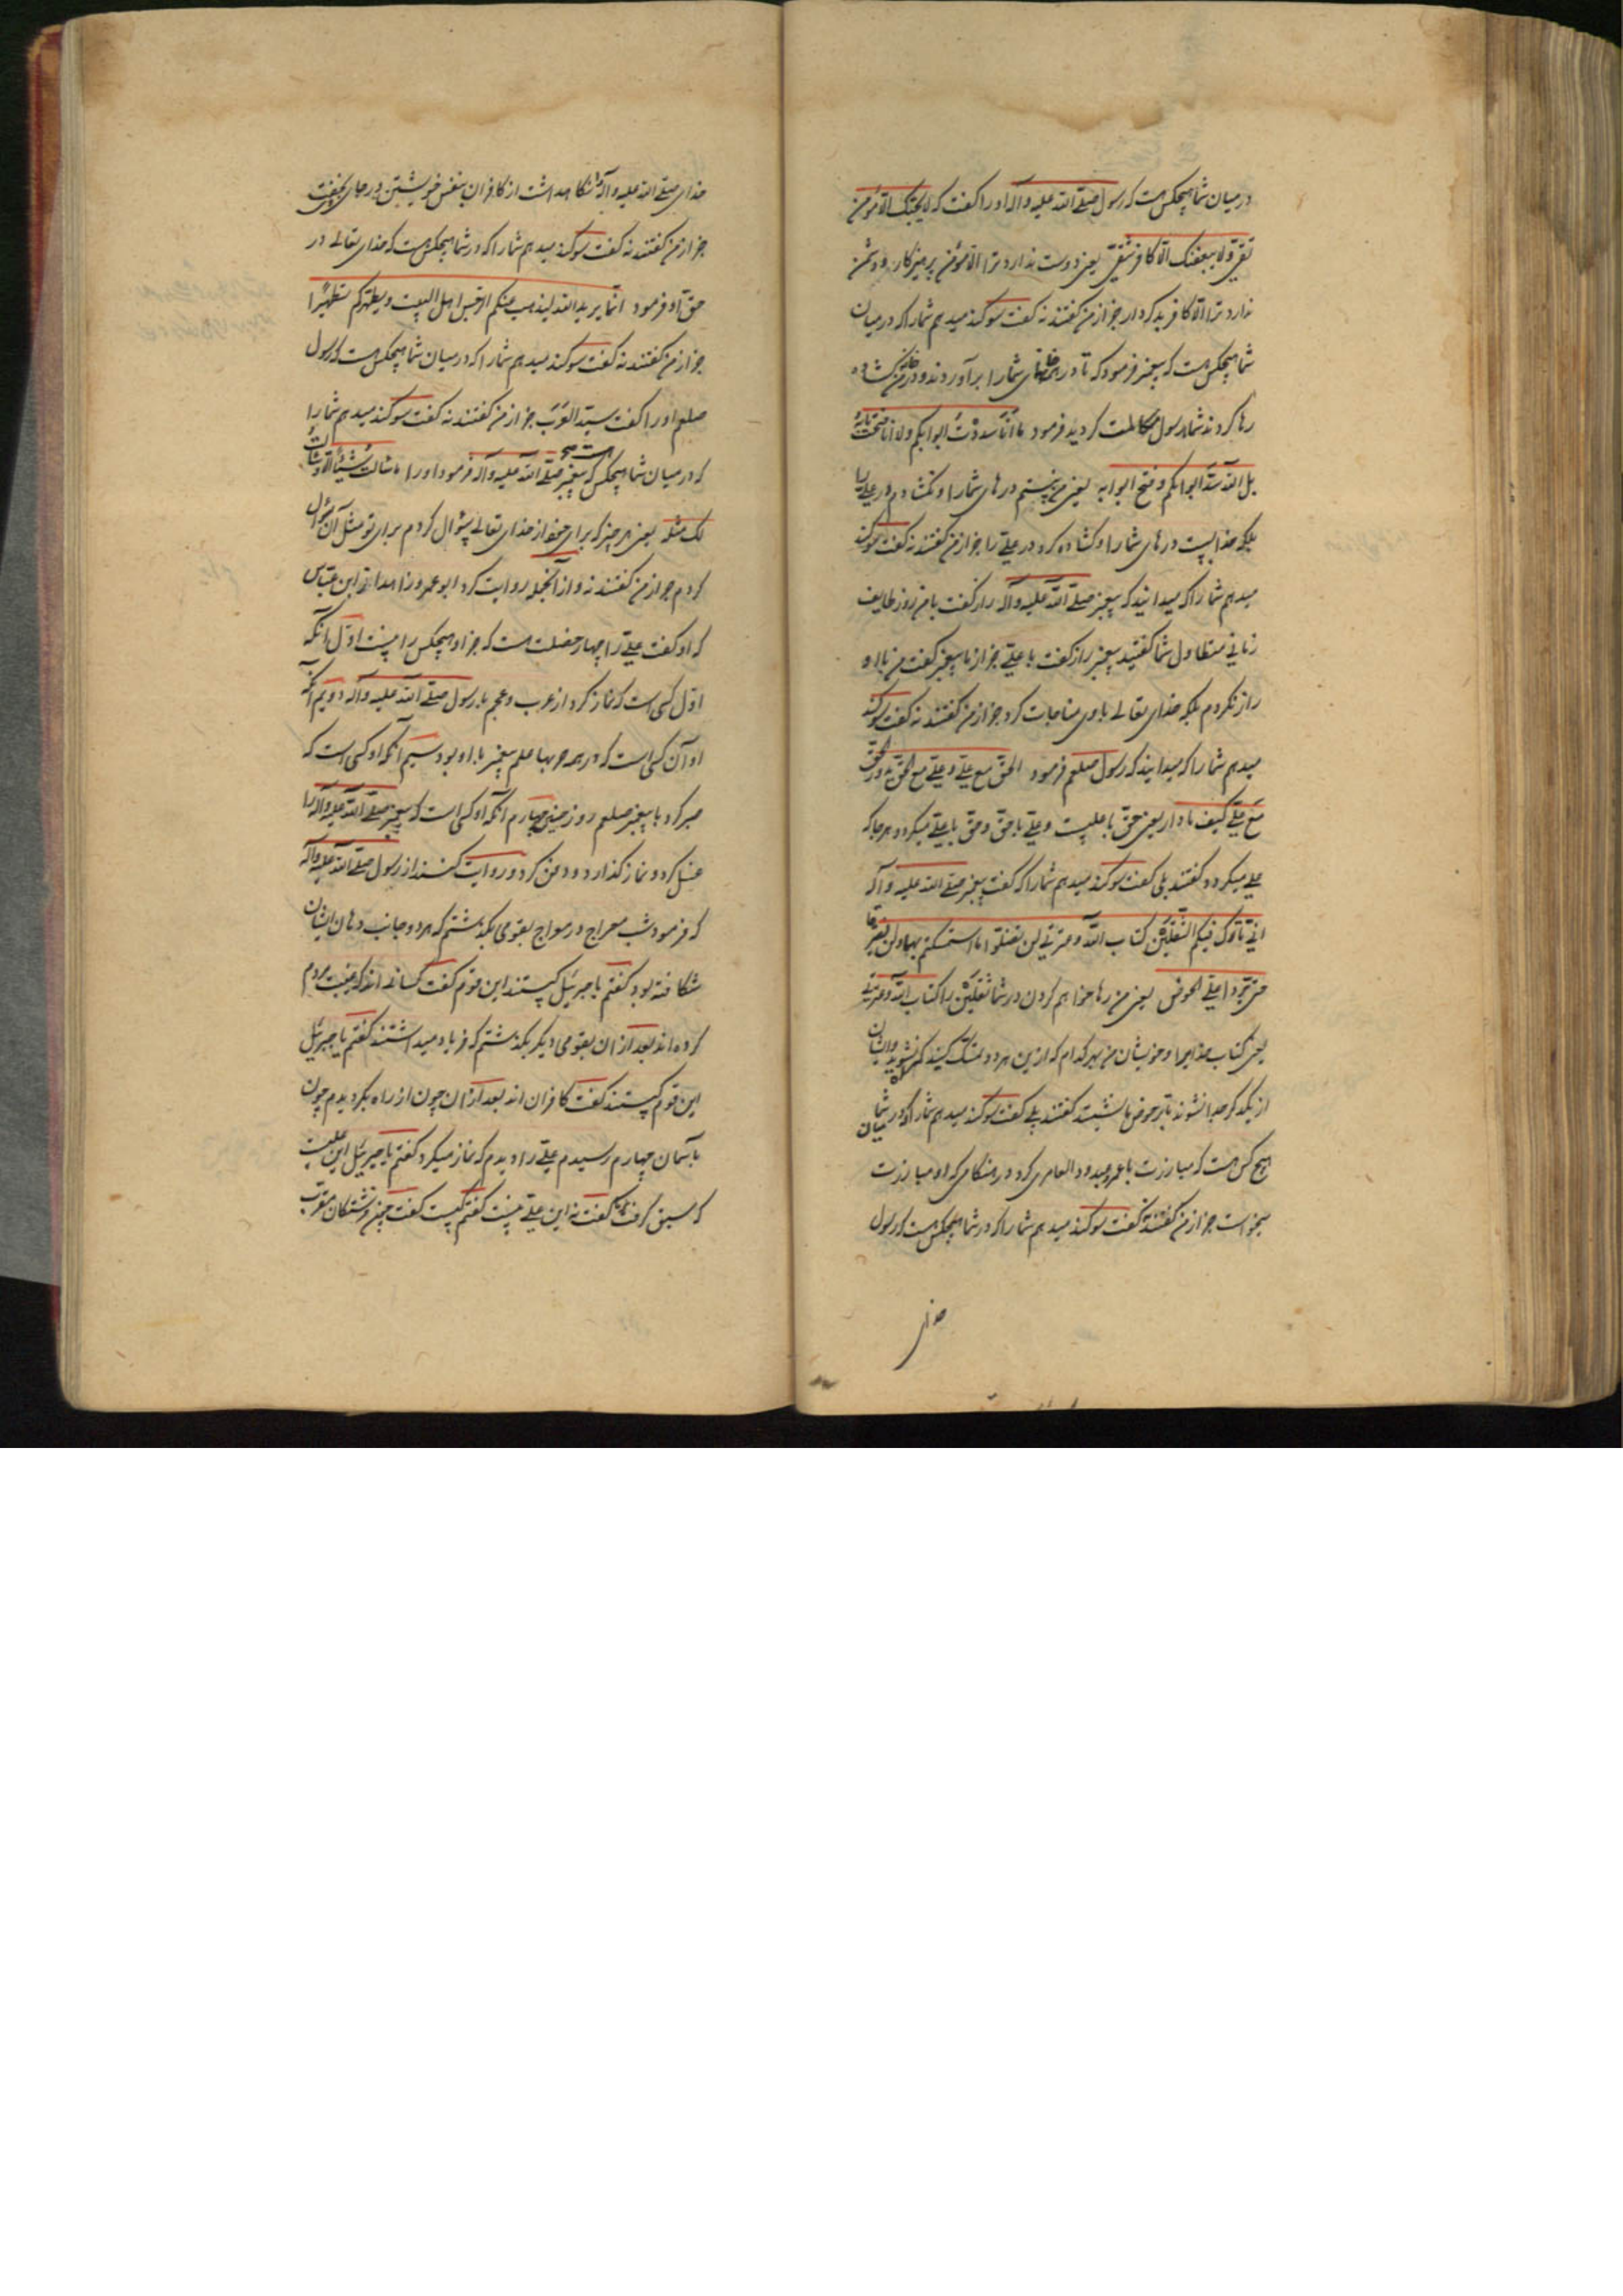 در میان شما هیچکس هست که رسول صلی الله علیه وآله او را گفت که لایحبک الا مؤمن
تقی ولا یبغضک الا کافر شقی یعنی دوست ندارد ترا الا مؤمن پرهیزکار و دشمن
ندارد ترا الا کافر بدکردار جز از من گفتند نه گفت سوگند میدهم شما را که در میان
شما هیچکس هست که پیغمبر فرمود که تا در خانهای شما را برآوردند و در خانه من گشاده
رها کردند شما با رسول کردید فرمود ما انا سددت ابوابکم ولا انا فتحت بابه
بل الله سد ابوابکم و فتح بابه یعنی من نبستم درهای شما را و نگشادم در علی را
بلکه خدا ببست درهای شما را و گشاده کرد در علی را جز از من گفتند نه گفت سوگند
میدهم شما را که میدانید که پیغمبر صلی الله علیه وآله راز گفت با من روز طایف
زمانی متطاول شما گفتید پیغمبر راز گفت با علی جز از ما پیغمبر گفت من با او
راز نکردم بلکه خدای تعالی با وی مناجات کرد جز از من گفتند نه گفت سوگند
میدهم شما را که میدانید که رسول صلعم فرمود الحق مع علی و علی مع الحق یدور الحق
مع علی کیف ما دار یعنی حق با علیست و علی با حق و حق با علی میگردد هر جا که
علی میگردد گفتند بلی گفت سوگند میدهم شما را که گفت پیغمبر صلی الله علیه وآله
انی تارک فیکم الثقلین کتاب الله و عترتی لن تضلوا ما استمسکتم بهما ولن یفترقا
حتی یردا علی الحوض یعنی من رها خواهم کردن در شما ثقلین را کتاب الله و عترتی
یعنی کتاب خدایرا و خویشان من بهر کدام که ازین هر دو تمسک کنید گمراه نشوید و ایشان
از یکدگر جدا نشوند تا بر حوض با گفتند بلی گفت سوگند میدهم شما را که در میان شما
هیچ کس هست که مبارزت با عمرو عبدود العامری کرد در هنگامی که او مبارزت
میخواست جز از من گفتند نه گفت سوگند میدهم شما را که در شما هیچکس هست که رسول
خدای
خدای صلی الله علیه وآله را نگاه داشت از کافران بنفس خویشتن و در جای وی بخفت
جز از من گفتند نه گفت سوگند میدهم شما را که در شما هیچکس هست که خدای تعالی در
حق او فرمود انما یرید الله لیذهب عنکم الرجس اهل البیت و یطهرکم تطهیرا
جز از من گفتند نه گفت سوگند میدهم شما را که در میان شما هیچکس هست که رسول
صلعم او را گفت سید العرب جز از من گفتند نه گفت سوگند میدهم شما را
که در میان شما هیچکس هست که پیغمبر صلی الله علیه وآله فرمود او را ما سالت شیئا الا وسالت
لک مثله یعنی هر چیز که برای خود از خدای تعالی سؤال کردم برای تو مثل آن سؤال
کردم جز از من گفتند نه و از آنجمله روایت کرد ابو عمرو زاهد از ابن عباس
که او گفت علی را چهار خصلت است که جز او هیچکس را نیست اول آنکه
اول کسی است که نماز کرد از عرب و عجم با رسول صلی الله علیه وآله دویم آنکه
او آن کسی است که در همه حربها علم پیغمبر با او بود سیم آنکه او کسی است که
صبر کرد با پیغمبر صلعم روز حنین چهارم آنکه او کسی است که پیغمبر صلی الله علیه وآله را
غسل کرد و نماز گذارد و دفن کرد و روایت کنند از رسول صلی الله علیه وآله
که فرمود شب معراج در معراج بقومی بگذشتم که هر دو جانب دهان ایشان
شکافته بود گفتم یا جبرئیل کیستند این قوم گفت کسانی اند که غیبت مردم
کرده اند بعد از آن بقومی دیگر بگذشتم که فریاد میداشتند گفتم یا جبرئیل
این قوم کیستند گفت کافران اند بعد از آن چون از راه بگردیدم چون
بآسمان چهارم رسیدم علی را دیدم که نماز میکرد گفتم یا جبرئیل این علیست
که سبق گرفت گفت نه این علی نیست گفتم کیست گفت چون فرشتگان مقرب